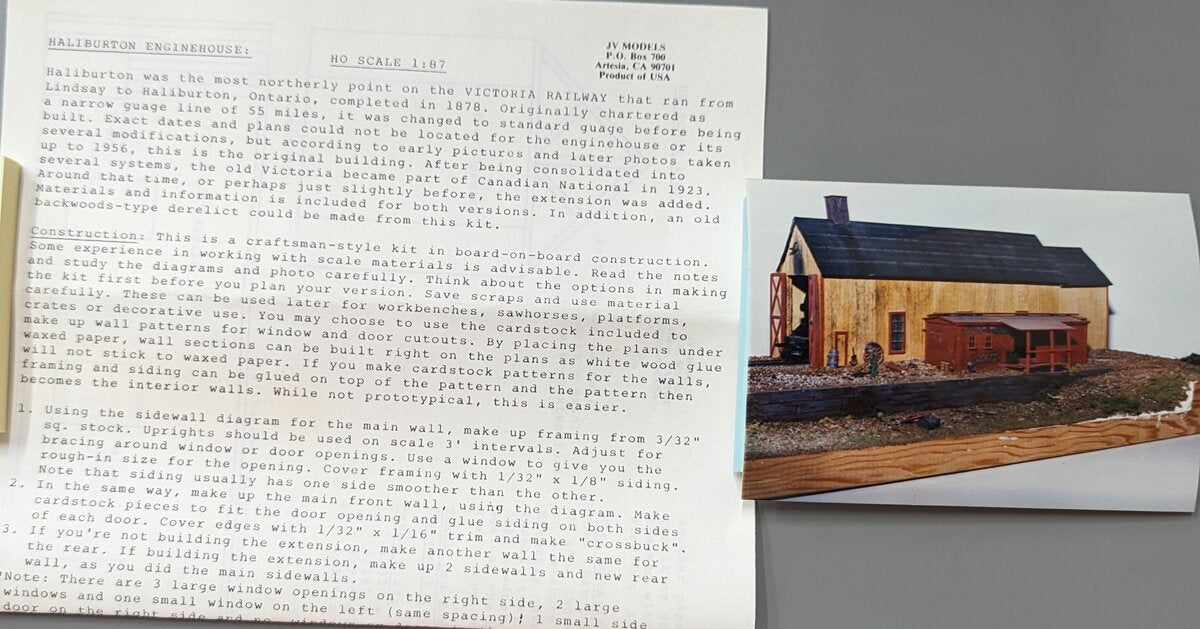 HALIBURTON ENGINEHOUSE:
HO SCALE 1:87
JV MODELS
P.O. Box 700
Artesia, CA 90701
Product of USA
Haliburton was the most northerly point on the VICTORIA RAILWAY that ran from
Lindsay to Haliburton, Ontario, completed in 1878. Originally chartered as
a narrow guage line of 55 miles, it was changed to standard guage before being
built. Exact dates and plans could not be located for the enginehouse or its
several modifications, but according to early pictures and later photos taken
up to 1956, this is the original building. After being consolidated into
several systems, the old Victoria became part of Canadian National in 1923.
Around that time, or perhaps just slightly before, the extension was added.
Materials and information is included for both versions. In addition, an old
backwoods-type derelict could be made from this kit.
Construction: This is a craftsman-style kit in board-on-board construction.
Some experience in working with scale materials is advisable. Read the notes
and study the diagrams and photo carefully. Think about the options in making
the kit first before you plan your version. Save scraps and use material
carefully. These can be used later for workbenches, sawhorses, platforms,
crates or decorative use. You may choose to use the cardstock included to
make up wall patterns for window and door cutouts. By placing the plans under
waxed paper, wall sections can be built right on the plans as white wood glue
will not stick to waxed paper. If you make cardstock patterns for the walls,
framing and siding can be glued on top of the pattern and the pattern then
becomes the interior walls. While not prototypical, this is easier.
1. Using the sidewall diagram for the main wall, make up framing from 3/32"
sq. stock. Uprights should be used on scale 3' intervals. Adjust for
bracing around window or door openings. Use a window to give you the
rough-in size for the opening. Cover framing with 1/32" x 1/8" siding.
Note that siding usually has one side smoother than the other.
2. In the same way, make up the main front wall, using the diagram. Make
cardstock pieces to fit the door opening and glue siding on both sides
of each door. Cover edges with 1/32" x 1/16" trim and make "crossbuck".
3. If you're not building the extension, make another wall the same for
the rear. If building the extension, make up 2 sidewalls and new rear
wall, as you did the main sidewalls.
*Note: There are 3 large window openings on the right side, 2 large
windows and one small window on the left (same spacing); 1 small side
door on the right side and no